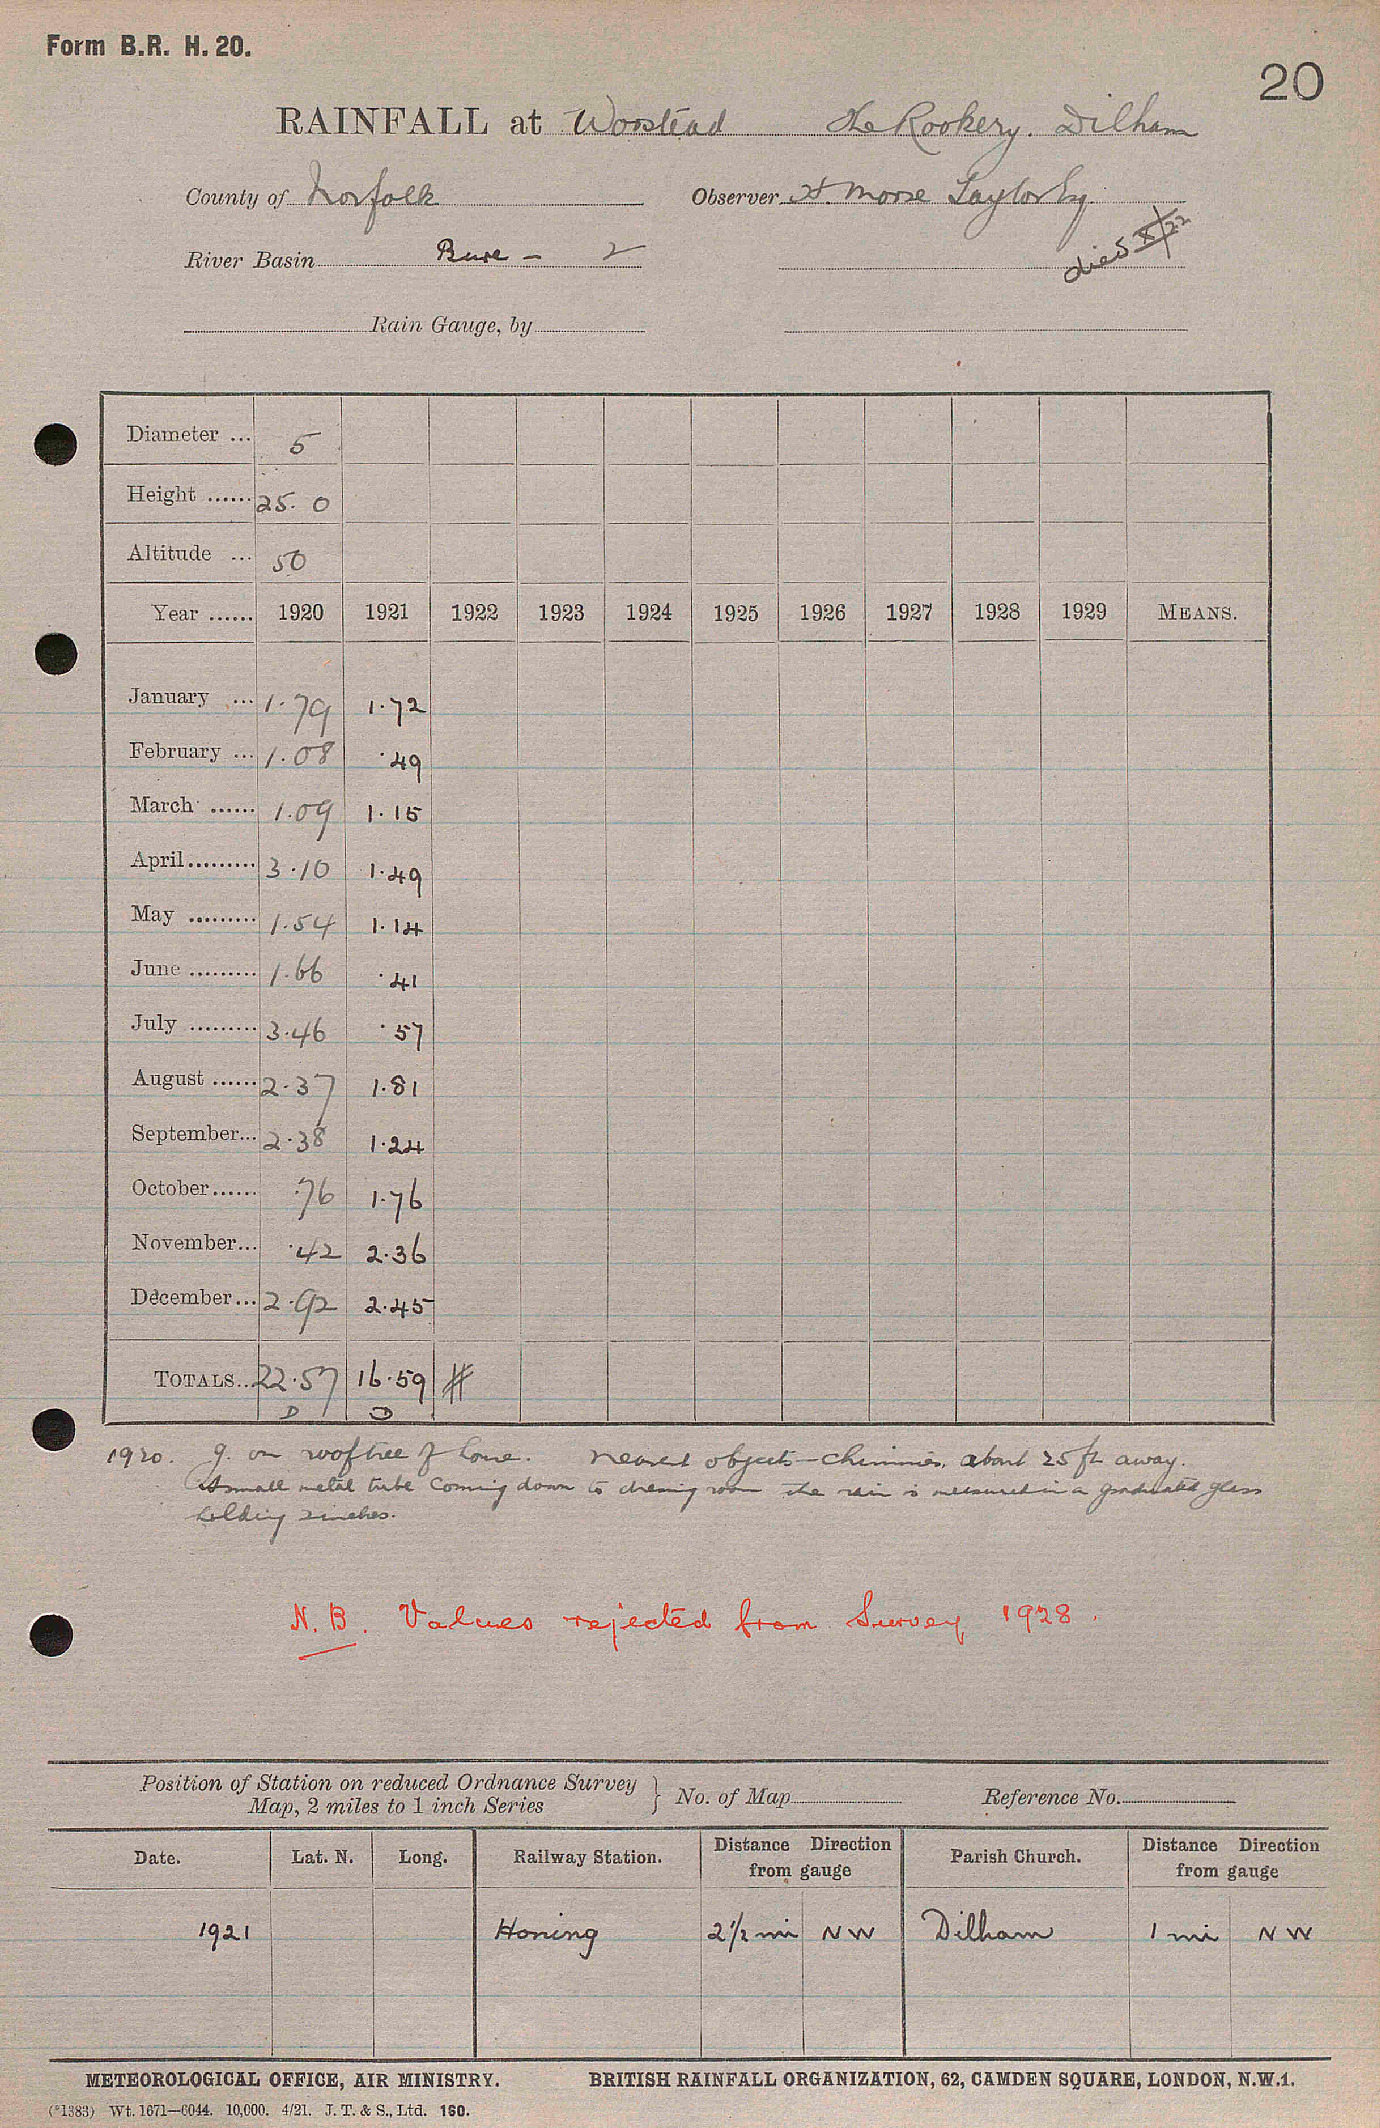 Form B.R. H. 20.
20
RAINFALL at Worstead The Rookery. Dilham
County of Norfolk Observer H. Morse Taylor Esq.
River Basin Bure - 2 died X/22
Rain Gauge, by
Diameter ... 5
Height ...... 25. 0
Altitude ... 50
Year ...... 1920 1921 1922 1923 1924 1925 1926 1927 1928 1929 MEANS.
January ... 1.79 1.72
February ... 1.08 .49
March ...... 1.09 1.15
April......... 3.10 1.49
May ......... 1.54 1.14
June ......... 1.66 .41
July ......... 3.46 .57
August ...... 2.37 1.81
September... 2.38 1.24
October...... .76 1.76
November... .42 2.36
December... 2.92 2.45
TOTALS... 22.57 16.59 #
D D
1920. g. on rooftree of house. Nearest objects - chimnies, about 25 ft away.
A small metal tube coming down to dressing room the rain is measured in a graduated glass
holding 2 inches.
N.B. Values rejected from Survey 1928.
Position of Station on reduced Ordnance Survey
Map, 2 miles to 1 inch Series } No. of Map Reference No.
Date. Lat. N. Long. Railway Station. Distance Direction from gauge Parish Church. Distance Direction from gauge
1921 Honing 2 1/2 mi NW Dilham 1 mi NW
METEOROLOGICAL OFFICE, AIR MINISTRY. BRITISH RAINFALL ORGANIZATION, 62, CAMDEN SQUARE, LONDON, N.W.1.
(*1383) Wt. 1671—6044. 10,000. 4/21. J. T. & S., Ltd. 160.